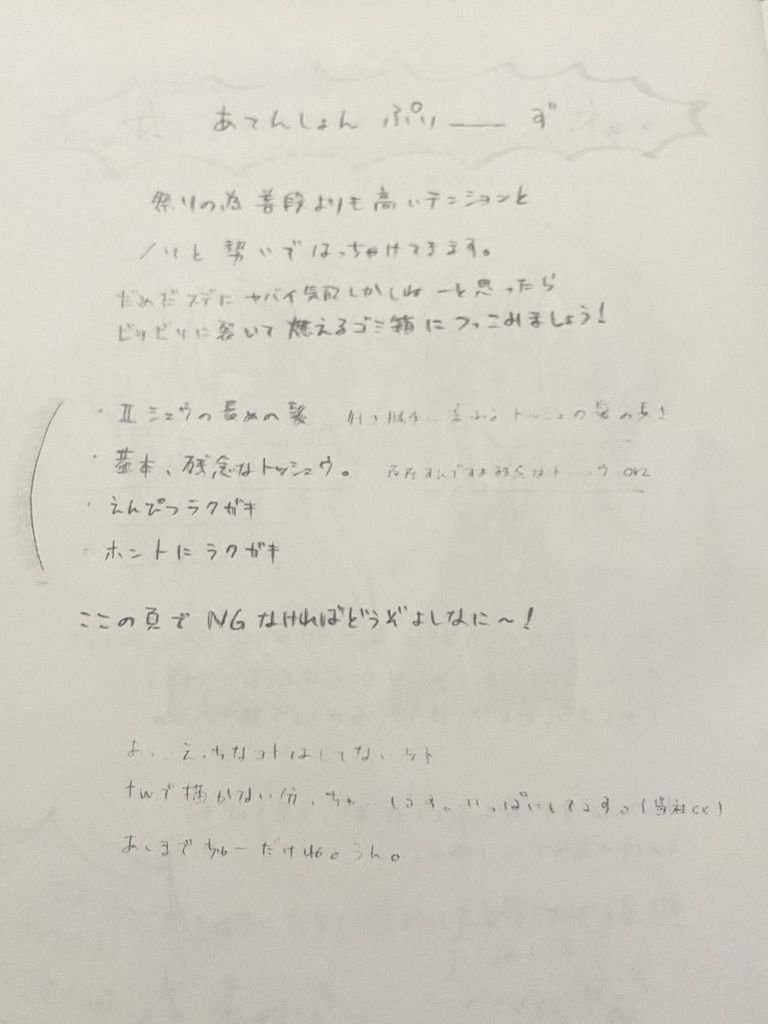 あてんしょん ぷり―― ず
祭りの為普段よりも高いテンションと
ノリと勢いではっちゃけてきます。
だめだステにヤバイ気配しかしねーと思ったら
ビリビリに裂いて燃えるゴミ箱につっこみましょう!
・Ⅱシュウの長めの髪 勝手に トッシュの髪の長!
・基本、残念なトッシュウ。 残念なトッシュウ orz
・えんぴつラクガキ
・ホントにラクガキ
ここの頁でNGなければどうぞよしなに～!
あ、えっちなコトはしてないケド
twで描かない分、ちゅーします。いっぱいしてます。(当社比)
あくまでちゅーだけね。うん。